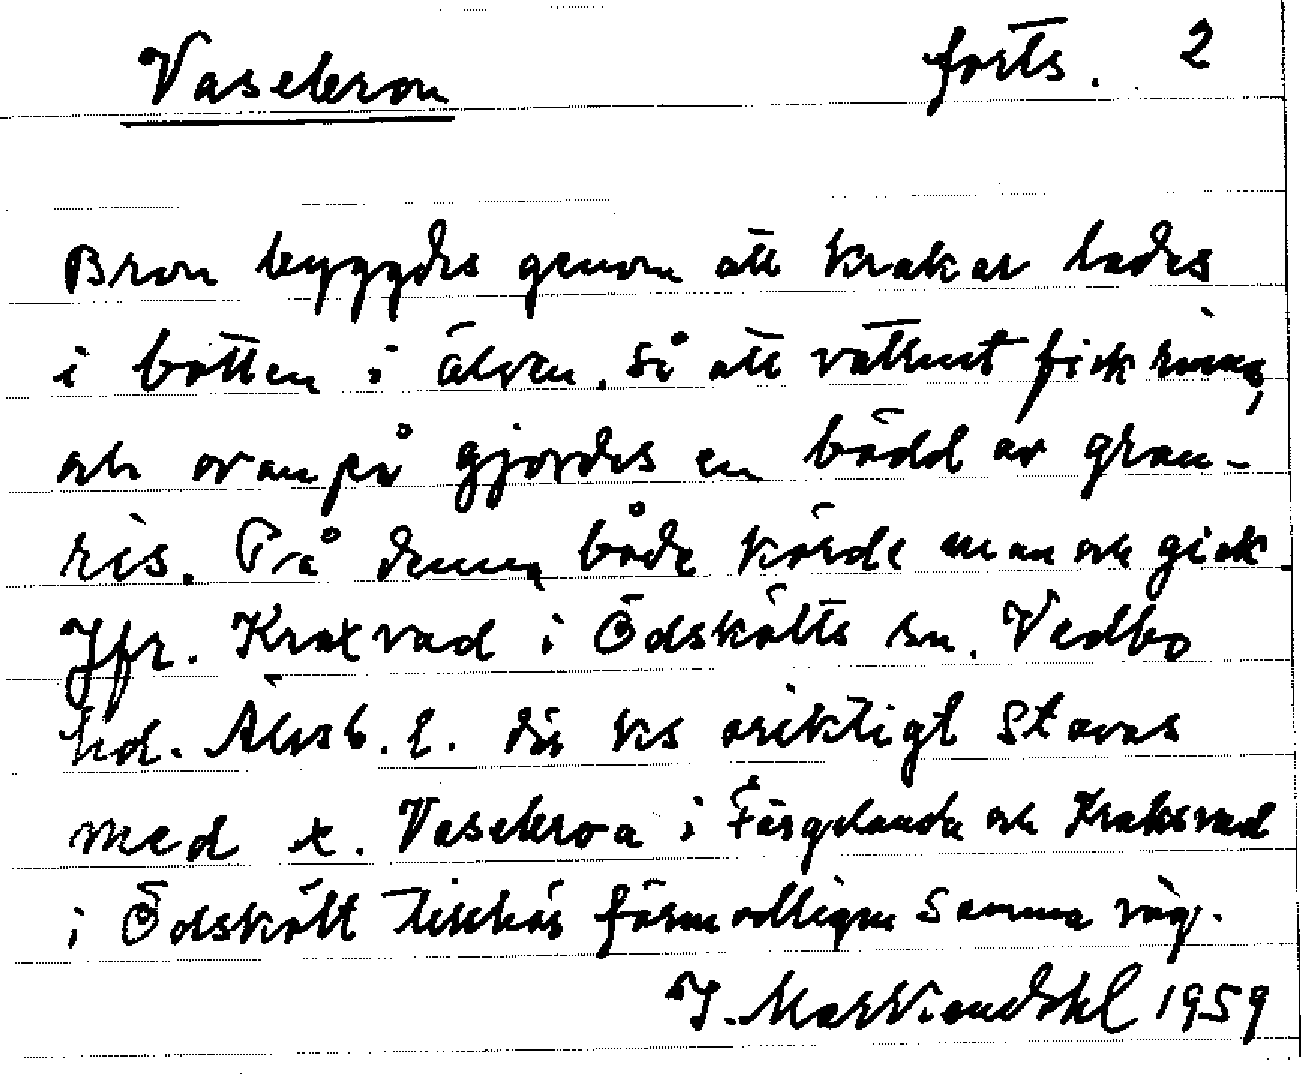 Vasebron forts. 2
Bron byggdes genom att krakar lades
i botten i älven, så att vattnet fick rinna,
och ovanpå gjordes en bädd av gran-
ris. På denna både körde man och gick
Jfr. Kraxvad i Ödskölts sn. Vedbo
hd. Älvsb. l. där ks oriktigt stavas
med x. Vasebron i Färgelanda och Kraksvad
i Ödskölt tillhör förmodligen samma väg.
J. 1959